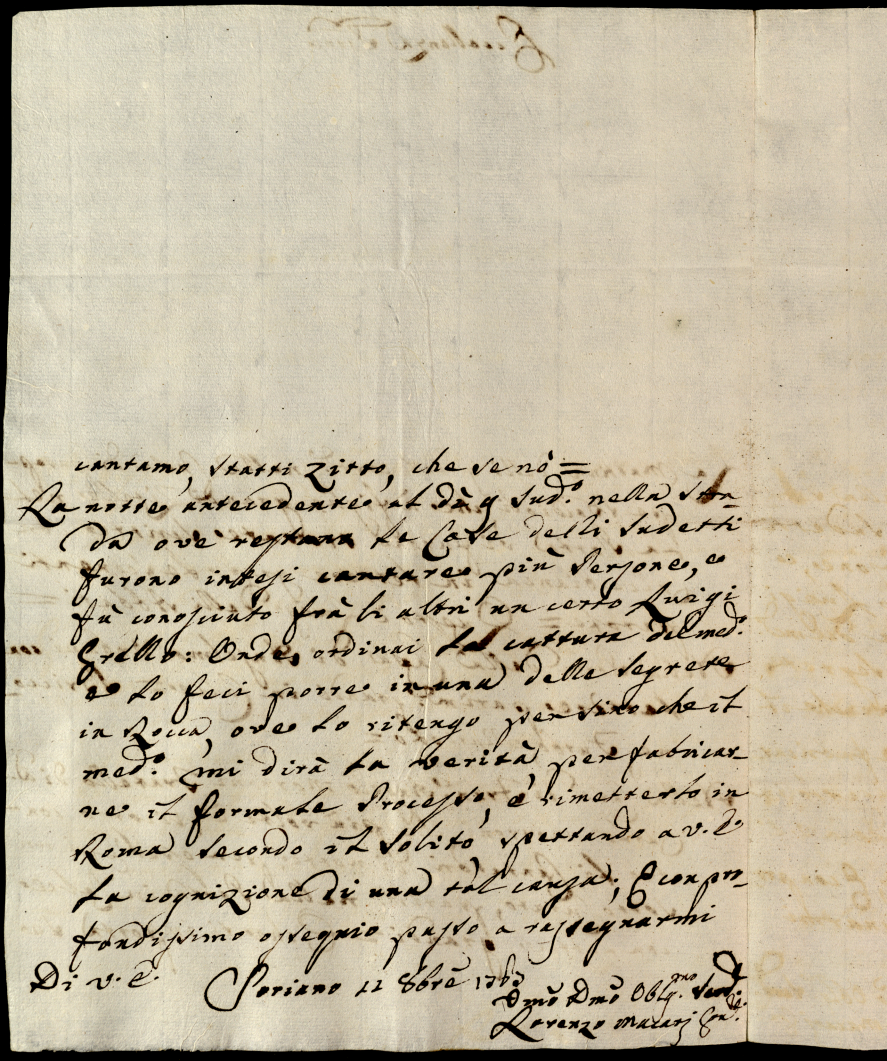 cantamo, statti zitto, che se nò =
La notte antecedente al dì 9 sud.o nella stra-
da ove restano le Case delli sudetti
furono intesi cantare più Persone, e
fù conosciuto frà li altri un certo Luigi
Grello: Onde, ordinai la cattura del med.o
e lo feci porre in una delle segrete
in Rocca, ove lo ritengo per sino che il
med.o mi dirà la verità, per fabricar-
ne il formale Processo, è rimetterlo in
Roma secondo il solito, spettando a v. E.
la cognizione di una tal causa; E con pro-
fondissimo ossequio passo a rassegnarmi
Di v. E. Soriano 12 8bre
Dmo Dmo Oblig.mo Serv.
Lorenzo